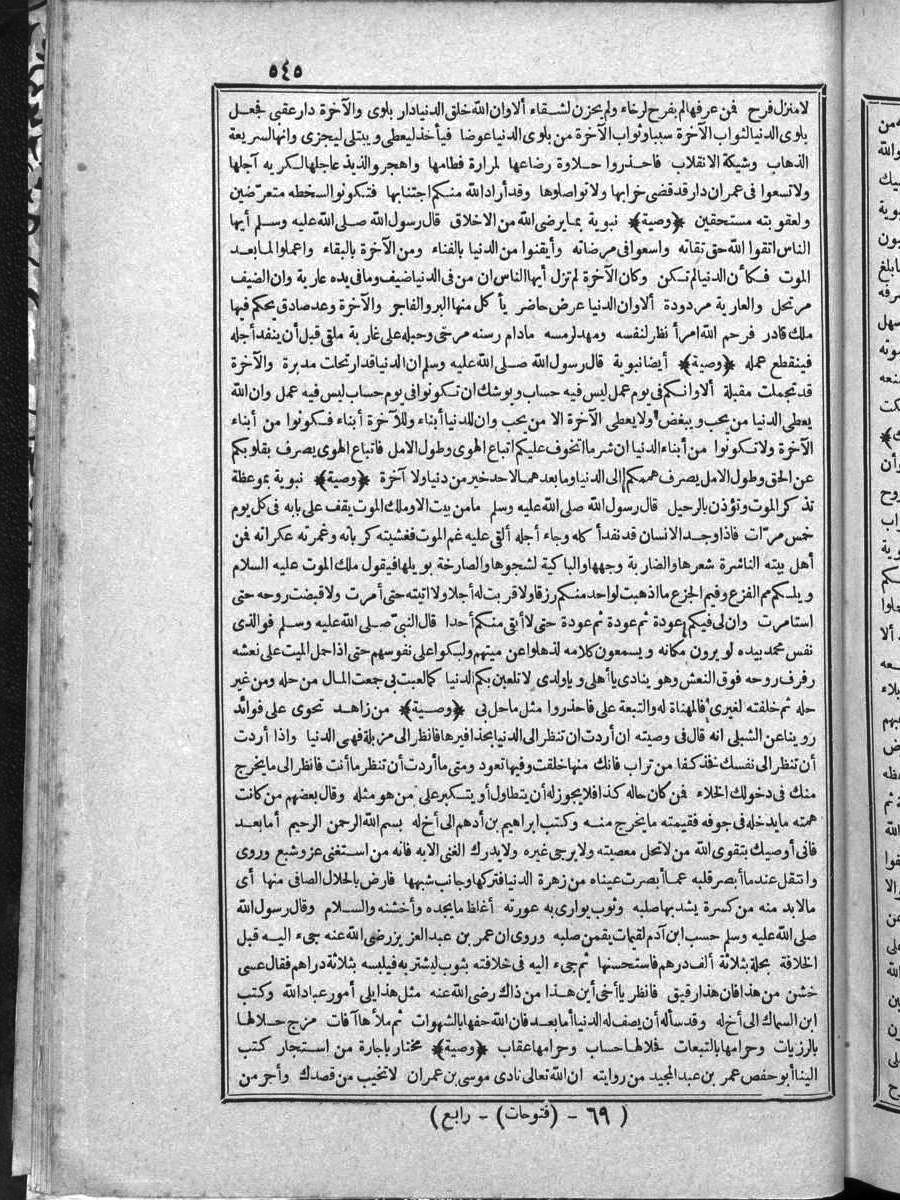 ٥٤٥
لا منزل فرح فمن عرفها لم يفرح لرخاء ولم يحزن لشقاء ألا وان الله خلق الدنيا دار بلوى والآخرة دار عقبى فجعل
بلوى الدنيا لثواب الآخرة سببا وثواب الآخرة من بلوى الدنيا عوضا فيأخذ ليعطى ويبتلى ليجزى وانها لسريعة
الذهاب وشيكة الانقلاب فاحذروا حلاوة رضاعها لمرارة فطامها واهجروا لذيذ عاجلها لكريه آجلها
ولا تسعوا فى عمران دار قد قضى خرابها ولا تواصلوها وقد أراد الله منكم اجتنابها فتكونوا لسخطه متعرّضين
ولعقوبته مستحقين ﴿وصية﴾ نبوية بما يرضى الله من الاخلاق قال رسول الله صلى الله عليه وسلم أيها
الناس اتقوا الله حق تقاته واسعوا فى مرضاته وأيقنوا من الدنيا بالفناء ومن الآخرة بالبقاء واعملوا لما بعد
الموت فكأن الدنيا لم تكن وكان الآخرة لم تزل أيها الناس ان من فى الدنيا ضيف وما فى يده عارية وان الضيف
مرتحل والعارية مردودة ألا وان الدنيا عرض حاضر يأكل منها البر والفاجر والآخرة وعد صادق يحكم فيها
ملك قادر فرحم الله امرأ نظر لنفسه ومهد لرمسه مادام رسنه مرخى وحبله على غاربة ملقى قبل أن ينفد أجله
فينقطع عمله ﴿وصية﴾ أيضا نبوية قال رسول الله صلى الله عليه وسلم ان الدنيا قد ارتحلت مدبرة والآخرة
قد تجملت مقبلة ألا وانكم فى يوم عمل ليس فيه حساب ويوشك ان تكونوا فى يوم حساب ليس فيه عمل وان الله
يعطى الدنيا من يحب ويبغض ولا يعطى الآخرة الا من يحب وان للدنيا أبناء وللآخرة أبناء فكونوا من أبناء
الآخرة ولا تكونوا من أبناء الدنيا ان شر ما اتخوف عليكم اتباع الهوى وطول الامل فاتباع الهوى يصرف بقلوبكم
عن الحق وطول الامل يصرف هممكم الى الدنيا وما بعدهما لاحد خير من دنيا ولا آخرة ﴿وصية﴾ نبوية بموعظة
تذكر الموت وتؤذن بالرحيل قال رسول الله صلى الله عليه وسلم ما من بيت الا وملك الموت يقف على بابه فى كل يوم
خمس مرّات فاذا وجد الانسان قد نفد أكله وجاء أجله ألقى عليه غم الموت فغشيته كرباته وغمرته عكراته فمن
أهل بيته الناشرة شعرها والضاربة وجهها والباكية لشجوها والصارخة بويلها فيقول ملك الموت عليه السلام
ويلكم مم الفزع وفيم الجزع ما اذهبت لواحد منكم رزقا ولا قربت له أجلا ولا اتيته حتى أمرت ولا قبضت روحه حتى
استامرت وان لى فيكم عودة ثم عودة ثم عودة حتى لا أبقى منكم أحدا قال النبيّ صلى الله عليه وسلم فوالذى
نفس محمد بيده لو يرون مكانه ويسمعون كلامه لذهلوا عن ميتهم ولبكوا على نفوسهم حتى اذا حمل الميت على نعشه
رفرف روحه فوق النعش وهو ينادى يا أهلى ويا ولدى لا تلعبن بكم الدنيا كما لعبت بى جمعت المال من حله ومن غير
حله ثم خلفته لغيرى فالمهناة له والتبعة على فاحذروا مثل ما حل بى ﴿وصية﴾ من زاهد تحوى على فوائد
روينا عن الشبلى انه قال فى وصيته ان أردت ان تنظر الى الدنيا بحذافيرها فانظر الى مزبلة فهى الدنيا واذا أردت
أن تنظر الى نفسك فخذ كفا من تراب فانك منها خلقت وفيها تعود ومتى ما أردت أن تنظر ما أنت فانظر الى ما يخرج
منك فى دخولك الخلاء فمن كان حاله كذا فلا يجوز له أن يتطاول أو يتكبر على من هو مثله وقال بعضهم من كانت
همته ما يدخله فى جوفه فقيمته ما يخرج منه وكتب ابراهيم بن أدهم الى أخ له بسم الله الرحمن الرحيم أما بعد
فانى أوصيك بتقوى الله من لا تحل معصيته ولا يرجى غيره ولا يدرك الغنى الا به فانه من استغنى عز وشبع وروى
وانتقل عندما أبصر قلبه عما أبصرت عيناه من زهرة الدنيا فتركها وجانب شبهها فارض بالحلال الصافى منها أى
مالا بد منه من كسرة يشد بها صلبه وثوب يوارى به عورته أغلظ ما يجده وأخشنه والسلام وقال رسول الله
صلى الله عليه وسلم حسب ابن آدم لقيمات يقمن صلبه وروى ان عمر بن عبد العزيز رضى الله عنه جىء اليه قبل
الخلافة بحلة بثلاثة ألف درهم فاستحسنها ثم جىء اليه فى خلافته بثوب ليشتر به فيلبسه بثلاثة دراهم فقال عسى
خشن من هذا فان هذا رقيق فانظر يا أخى أين هذا من ذاك رضى الله عنه مثل هذا يلى أمور عباد الله وكتب
ابن السماك الى أخ له وقد سأله أن يصف له الدنيا أما بعد فان الله حفها بالشهوات ثم ملأها آفات مزج حلالها
بالرزيات وحرامها بالتبعات فحلالها حساب وحرامها عقاب ﴿وصية﴾ مختار باجارة من استجار كتب
الينا أبو حفص عمر بن عبد المجيد من روايته ان الله تعالى نادى موسى بن عمران لا تخيب من قصدك وأجر من
( ٦٩ - (فتوحات) - رابع )